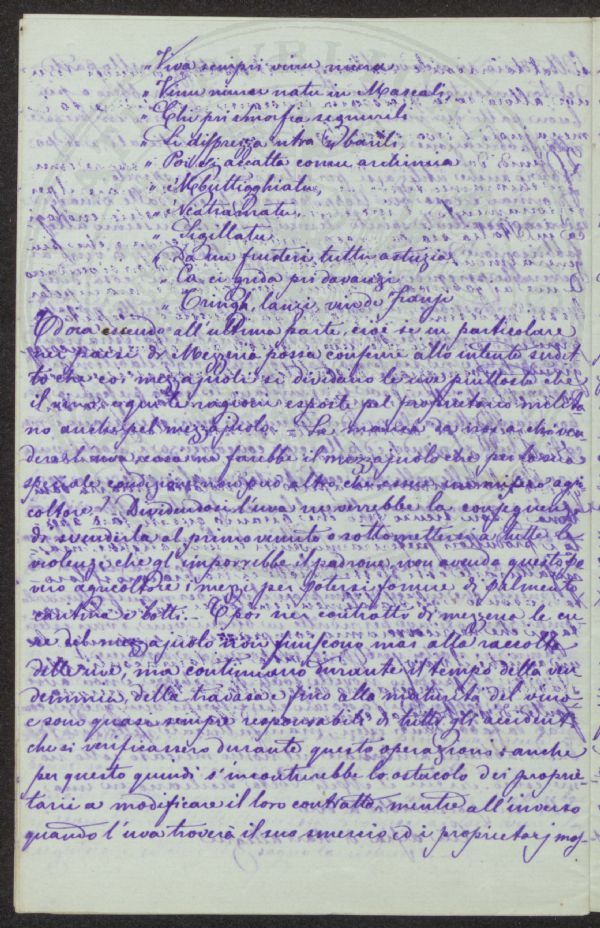 " Viva sempri vinu nurca
" Vinu nurca natu in Mascali
" Chi pri smorfia signurili
" Si disprezza ntra varili
" Poi s'accatta comu
" Mbuttigghiatu,
" Ncatramatu,
" Sigillatu
" Da nu furisteri tuttu astuzia
" Ca ci grida pri davanzi
" Trinch, lanzi, vin de Franzi
Ed ora essendo all'ultima parte, cioè se in particolare
nei paesi di Mezzeria possa conferire allo intento sudet-
to che coi mezzajuoli si dividano le uve piuttosto che
il vino, ogni ragioni esposte pel proprietario milita
no anche pel mezzajuolo. Se manca da noi a chi ven
dere l'uva cosa ne farebbe il mezzajuolo che per la sua
speciale condizione non può altro che essere un misero agri
coltore? Dividendosi l'uva ne verrebbe la conseguenza
di svenderla al primo venuto o sottomettersi a tutte le
violenze che gl'imporrebbe il padrone, non avendo questo po
vero agricoltore i mezzi per potersi fornire di palmento
cantina e botti. E poi nei contratti di mezzeria le cu
re del mezzajuolo non finiscono mai alla raccolta
delle uve, ma continuano durante il tempo della ven
demmia, della travasa e fino alla maturità del vino
e sono quasi sempre responsabili di tutti gli accidenti
che si verificassero durante queste operazioni: anche
per questo quindi s'incontrerebbe lo ostacolo dei proprie-
tarii a modificare il loro contratto, mentre all'inverso
quando l'uva troverà il suo smercio ed i proprietarj mos-